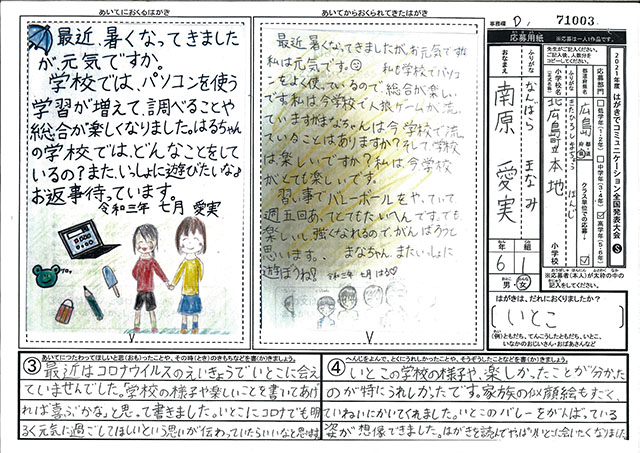 あいてにおくるはがき
最近、暑くなってきました
が、元気ですか。
学校では、パソコンを使う
学習が増えて、調べることや
総合が楽しくなりました。はるちゃん
の学校では、どんなことをして
いるの?また、いっしょに遊びたいなぁ
お返事待っています。
令和三年 七月 愛実
あいてからおくられてきたはがき
最近暑くなってきましたが、お元気ですか
私は元気です。
私も学校でパソコ
ンをよく使っているので、総合が楽しい
です。私は今学校で人狼ゲームが流行っ
ていますが、まなちゃんは今学校で流行っ
ていることはありますか?そして学校
は楽しいですか?私は今学校
がとても楽しいです。
習い事でバレーボールをやっていて、
週五回あってとてもたいへんです。でも、
楽しいし、強くなれるので、がんばろうと
思います。 まなちゃん、またいっしょに
遊ぼうね? 令和三年 七月 はる
事務欄
D-1
71003
応募用紙
※応募は一人1作品です。
2021年度 はがきでコミュニケーション全国発表大会
応募部門
低学年(1・2年)
中学年(3・4年)
高学年(5・6年)
広島
北広島町立本地
小学校
クラス単位での応募
おなまえ
なんばら まなみ
南原 愛実
6年
1組
男・女
※応募者(本人)が太枠の中の
記入をしてください。
はがきは、だれにおくりましたか?
いとこ
(例)ともだち、てんこうしたともだち、いとこ、
いなかのおじいさん・おばあさんなど
③ あいてにつたわってほしいと思(おも)ったことや、その時(とき)のきもちなどを書(か)きましょう。
最近はコロナウイルスのえいきょうでいとこに会え
ていませんでした。学校の様子や楽しいことを書いてあげ
れば喜ぶかな。と思って書きました。いとこにコロナでも明
るく元気に過ごしてほしいという思いが伝わっていたらいいなと思います。
④ へんじをよんで、とくにうれしかったことや、そうぞうしたことなどを書(か)きましょう。
いとこの学校の様子や、楽しかったことが分かった
のが特にうれしかったです。家族の似顔絵もすごく、
ていねいにかいてくれました。いとこのバレーをがんばっている
姿が想像できました。はがきを読んでやっぱりいとこに会いたくなりました。